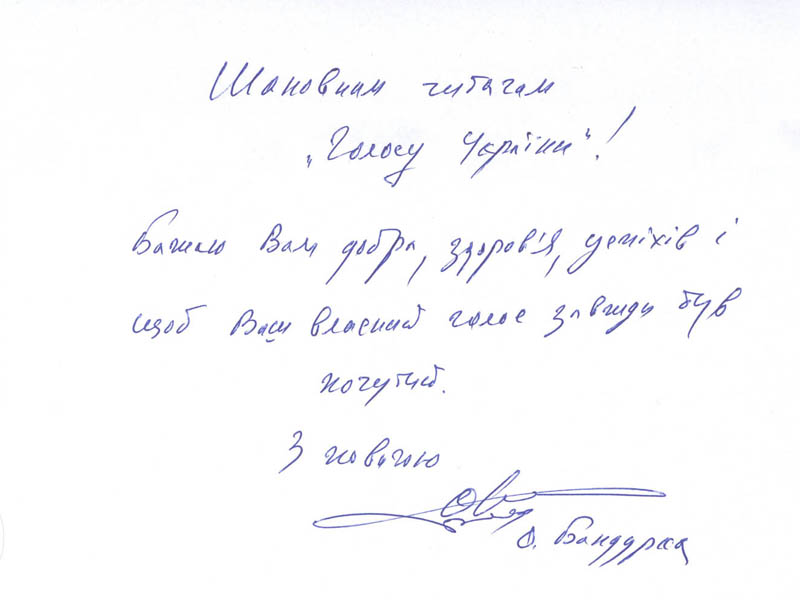 Шановним читачам
„Голосу України"!
Бажаю Вам добра, здоров'я, успіхів і
щоб Ваш власний голос завжди був
почутий.
З повагою
О. Бандурка